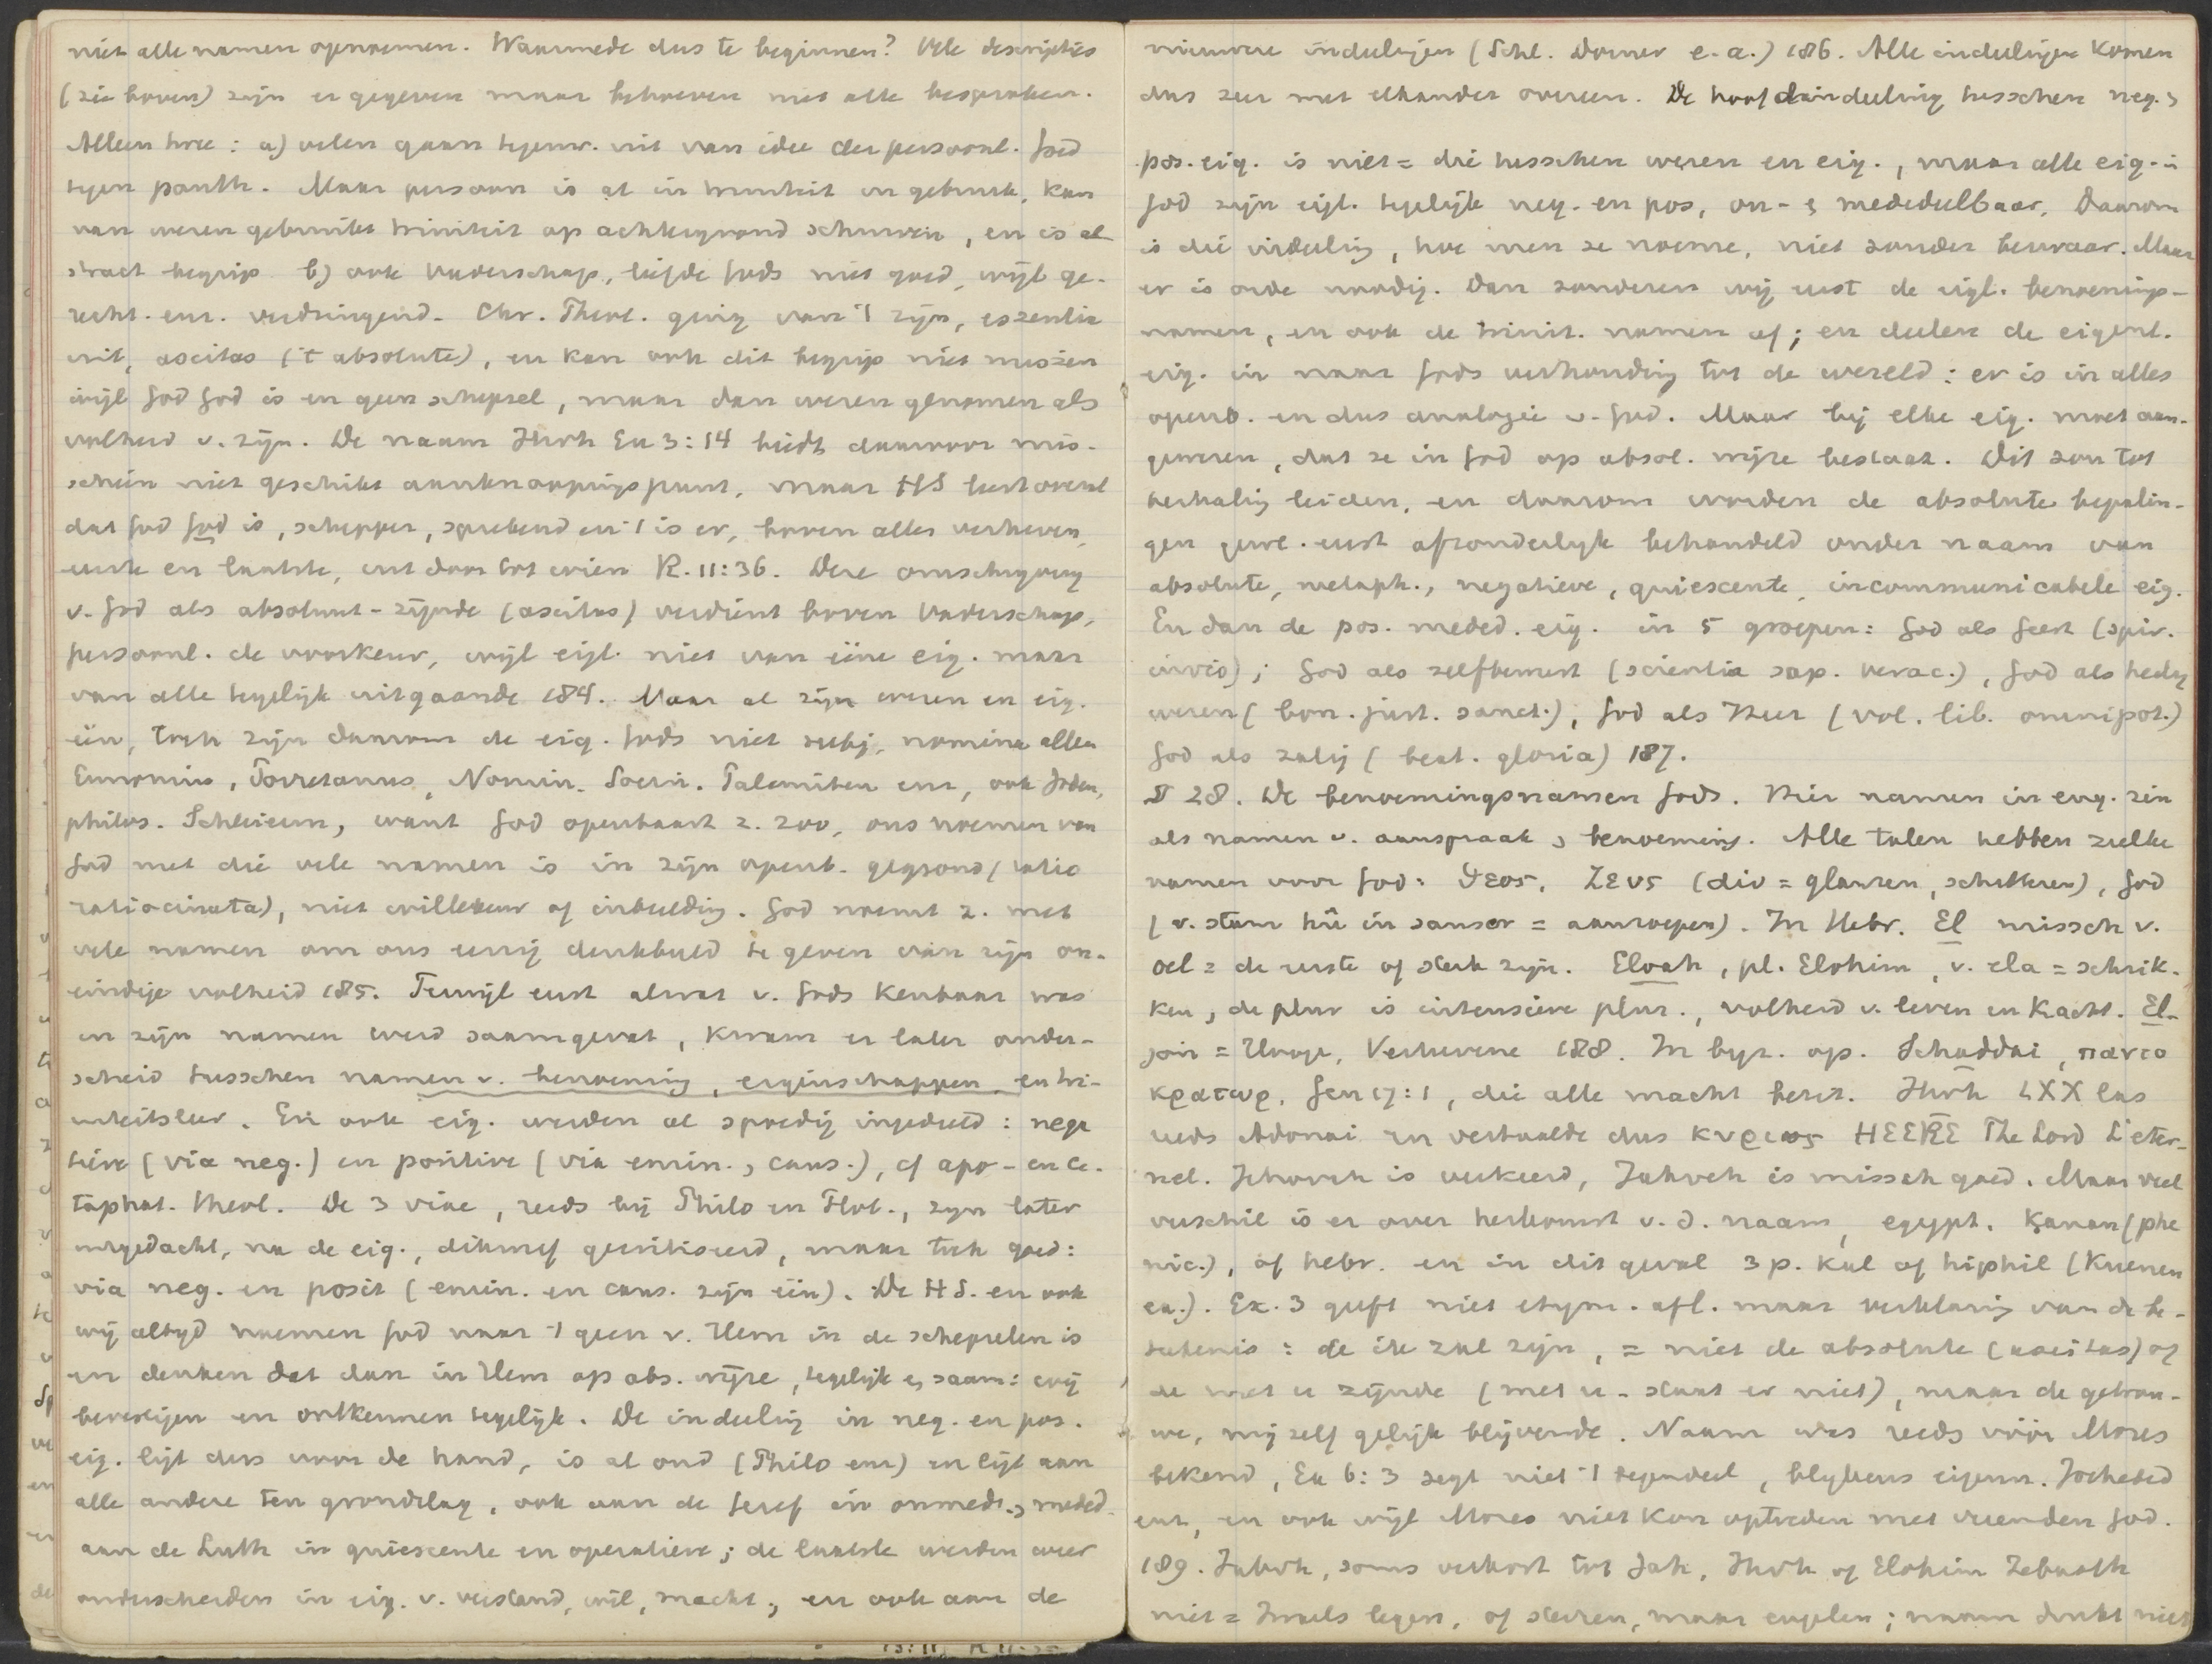 niet alle namen opnoemen. Waarmede dus te beginnen? Vele descripties
(zie boven) zijn er gegeven maar behoeven niet alle besproken.
Alleen twee: a) velen gaan tegenw. uit van idee der persoonl. God
tegen panth. Maar persoon is al in triniteit in gebruik, kan
van wezen gebruikt triniteit op achtergrond schuiven, en is al
stract begrip b) ook Vaderschap, liefde Gods niet goed, wijl ge-
recht. enz. verdringend. Chr. Theol. ging van 't zijn, essentie
uit, aseitas ('t absolute), en kan ook dit begrip niet missen
wijl God God is en geen schepsel, maar dan wezen genomen als
volheid v. zijn. De naam Jhvh Ex 3:14 biedt daarvoor mis-
schien niet geschikt aanknoopingspunt, maar HS leert overal
dat God God is, schepper, sprekend en 't is er, boven alles verheven,
eerste en laatste, uit door tot wien R. 11:36. Deze omschrijving
v. God als absoluut-zijnde (aseitas) verdient boven Vaderschap,
persoonl. de voorkeur, wijl eigl. niet van ééne eig. maar
van alle tegelijk uitgaande 184. Maar al zijn wezen en eig.
één, toch zijn daarom de eig. Gods niet subj. nomina alleen
Eunomius, Nomin. Socin. enz, ook Joden,
philos. Schleierm, want God openbaart z. zoo, ons noemen van
God met die vele namen is in zijn openb. gegrond (ratio
ratiocinata), niet willekeur of inbeelding. God noemt z. met
vele namen om ons eenig denkbeeld te geven van zijn on-
eindige volheid 185. Terwijl eerst alwat v. Gods kenbaar was
in zijn namen werd saamgevat, kwam er later onder-
scheid tusschen namen v. benoeming, eigenschappen, en tri-
niteitsleer. En ook eig. werden al spoedig ingedeeld: nega
tieve (via neg.) en positive (via emin., caus.), cf apo- en ca-
taphat. theol. De 3 viae, reeds bij Philo en Plot., zijn later
uitgedacht, na de eig., dikwijls gecritiseerd, maar toch goed:
via neg. en posit (emin. en caus. zijn één). De H.S. en ook
wij altijd noemen God naar 't geen v. Hem in de schepselen is
en denken dat dan in Hem op abs. wijze, tegelijk en saam: wij
bevestigen en ontkennen tegelijk. De indeeling in neg. en pos.
eig. ligt dus voor de hand, is al oud (Philo enz) en ligt aan
alle andere ten grondslag, ook aan de Geref in onmede., meded.
aan de Luth in quiescente en operatieve; de laatste werden weer
onderscheiden in eig. v. verstand, wil, macht, en ook aan de
nieuwere indeelingen (Schl. Dorner e.a.) 186. Alle indeelingen komen
dus zeer met elkander overeen. De hoofdindeeling tusschen neg. en
pos. eig. is niet = die tusschen wezen en eig., maar alle eig. in
God zijn eigl. tegelijk neg. en pos, on- en mededeelbaar. Daarom
is die indeeling, hoe men ze noeme, niet zonder bezwaar. Maar
er is orde noodig. Dan zonderen wij eerst de eigl. benoemings-
namen, en ook de trinit. namen af; en deelen de eigenl.
eig. in naar Gods verhouding tot de wereld: er is in alles
openb. en dus analogie v. God. Maar bij elke eig. moet aan-
gewezen, dat ze in God op absol. wijze bestaat. Dit zou tot
herhaling leiden, en daarom worden de absolute bepalin-
gen gewl. eerst afzonderlijk behandeld onder naam van
absolute, metaph., negatieve, quiescente, incommunicabele eig.
En dan de pos. meded. eig. in 5 groepen: God als Geest (spir.
invis); God als zelfbewust (scientia sap. verac.), God als heilig
wezen (bon. just. sanct.), God als Heer (vol. lib. omnipot.)
God als zalig (beat. gloria) 187.
§ 28. De benoemingsnamen Gods. Hier namen in eng. zin
als namen v. aanspraak, benoeming. Alle talen hebben zulke
namen voor God: θεος, Ζευς (div = glanzen, schitteren), God
(v. stam hû in sanscr = aanroepen). In Hebr. El missch v.
oel = de eerste of sterk zijn. Eloah, pl. Elohim, v. ela = schrik-
ken, de plur is intensieve plur., volheid v. leven en kracht. El-
join = Hooge, Verhevene 188. In byz. op. Schaddai, παντο
κρατωρ, Gen 17:1, die alle macht bezit. Jhvh LXX las
reeds Adonai en vertaalde dus κυριος HEERE The Lord L'éter-
nel. Jehovah is verkeerd, Jahveh is missch goed. Maar veel
verschil is er over herkomst v. d. naam, egypt. Kanan (phe
nic.), of hebr. en in dit geval 3 p. kal of hiphil (Kuenen
ea.). Ex. 3 geeft niet etym. afl. maar verklaring van de be-
teekenis: de ik zal zijn, = niet de absolute (aseitas) of
de met u zijnde (met u - staat er niet), maar de getrou-
we, mij zelf gelijk blijvende. Naam was reeds vóór Mozes
bekend, Ex 6:3 zegt niet 't tegendeel, blijkens eigenn. Jochebed
enz, en ook wijl Mozes niet kon optreden met vreemden God.
189. Jahvh, soms verkort tot Jah, Jhvh of Elohim Zebaoth
niet = Israels legers, of sterren, maar engelen; naam drukt niet